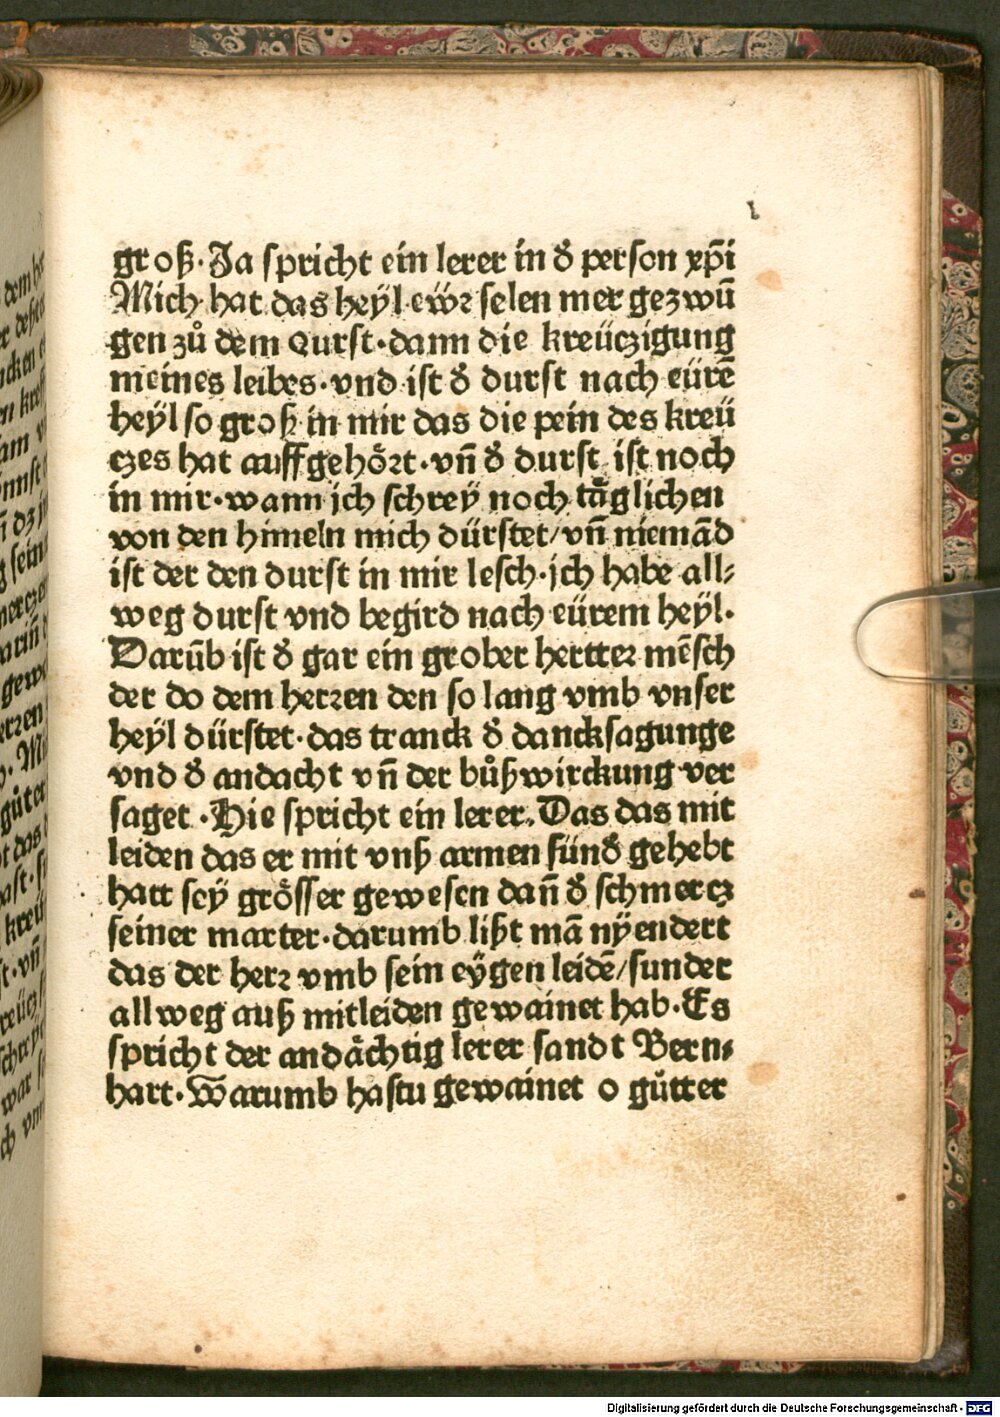 groß·Ja spricht ein lerer in đ person xp̄i
Mich hat das heÿl eẅꝛ selen mer gezwū
gen zů dem durst·dann die kreüczigung
meines leibes·vnd ist đ durst nach eürē
heÿl so groß in mir das die pein des kreü
czes hat auffgehöꝛt·vn̄ đ durst ist noch
in mir·wann ich schreÿ noch täglichen
von den himeln mich dürstet/vn̄ niemād
ist der den durst in mir lesch·ich habe all⸗
weg durst vnd begird nach eürem heÿl·
Darūb ist đ gar ein grober hertteꝛ mēsch
der do dem herꝛen den so lang vmb vnser
heÿl dürstet·das tranck đ dancksagunge
vnd đ andacht vn̄ der bůßwirckung ver
saget·Hie spricht ein lerer·Das das mit
leiden das er mit vnß armen sünđ gehebt
hatt seÿ grösser gewesen dan̄ đ schmercz
seiner marter·darumb lißt mā nÿendert
das der herꝛ vmb sein eÿgen leidē/sunder
allweg auß mitleiden gewainet hab·Es
spricht der andächtig lerer sandt Bern⸗
hart·Warumb hastu gewainet o gůtter
Digitalisierung gefördert durch die Deutsche Forschungsgemeinschaft - DFG